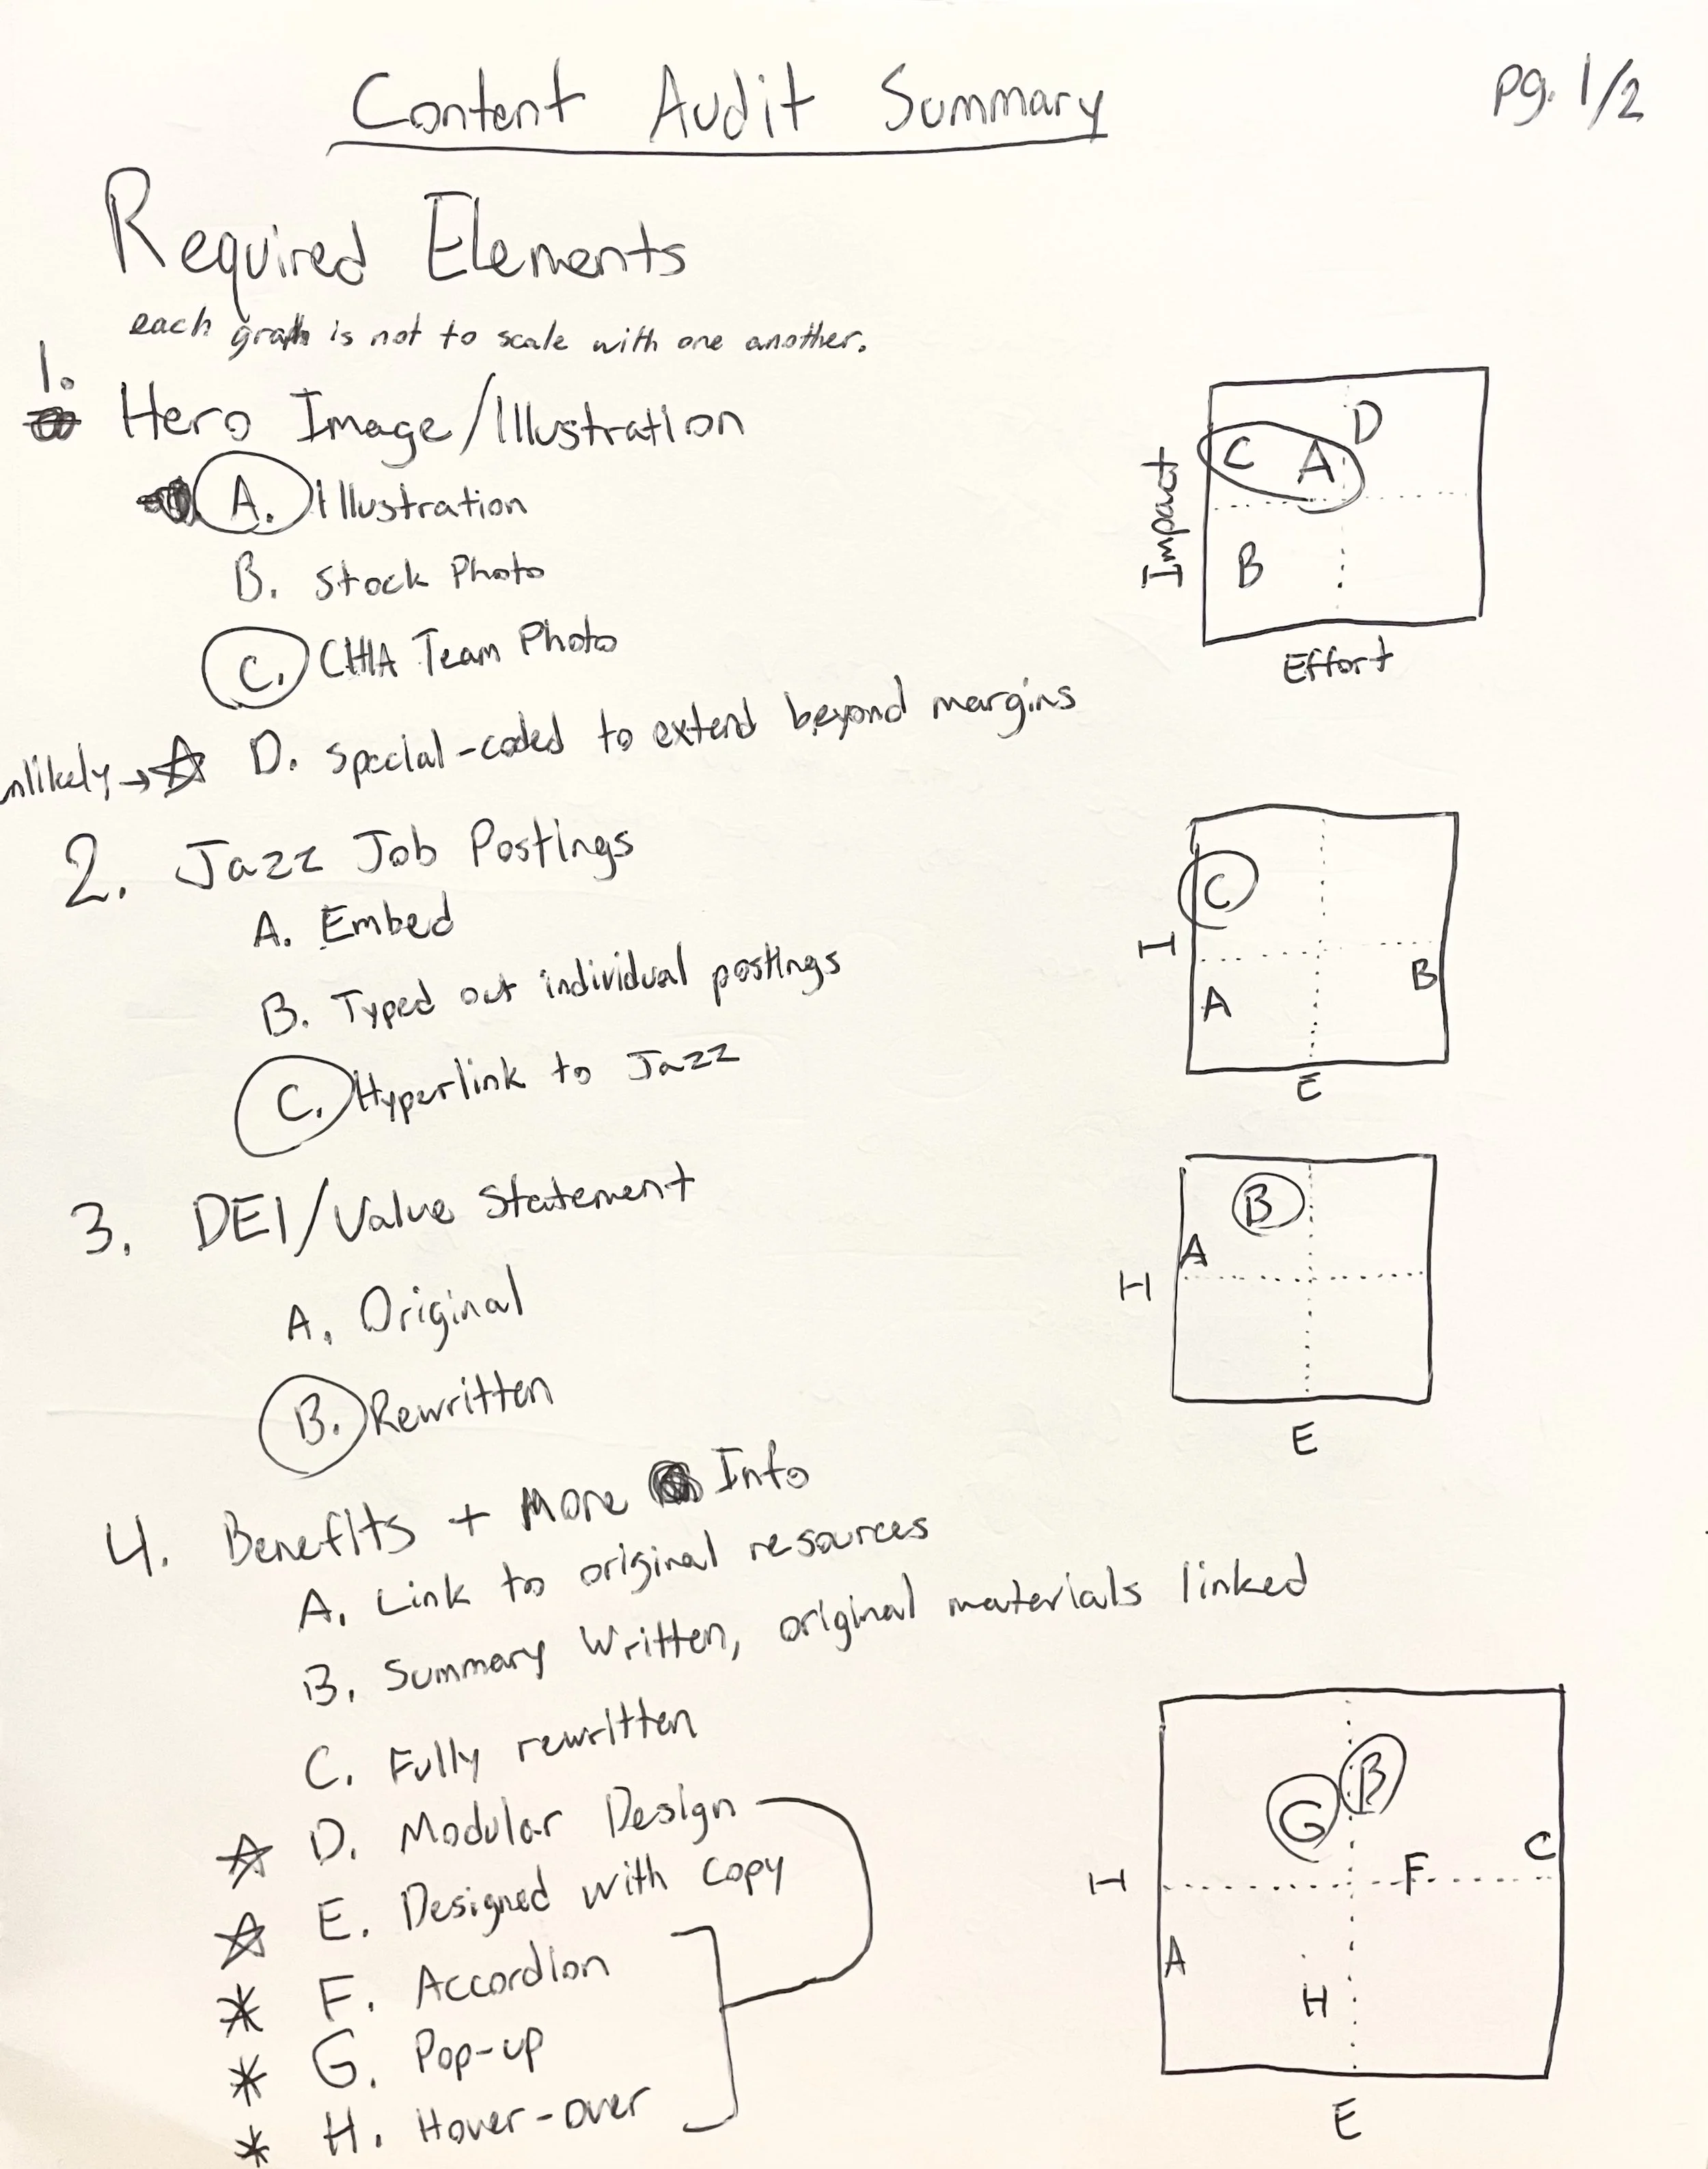 Content Audit Summary
pg. 1/2
Required Elements
each graph is not to scale with one another.
1.
Hero Image/Illustration
A. Illustration
B. Stock Photo
C. CHIA Team Photo
nlikely → ☆ D. Special-coded to extend beyond margins
D
C A
B
Impact
Effort
2. Jazz Job Postings
A. Embed
B. Typed out individual postings
C. Hyperlink to Jazz
C
B
A
I
E
3. DEI/Value Statement
A. Original
B. Rewritten
B
A
I
E
4. Benefits + More Info
A. Link to original resources
B. Summary Written, original materials linked
C. Fully rewritten
☆ D. Modular Design
☆ E. Designed with copy
* F. Accordion
* G. Pop-up
* H. Hover-over
B
G
C
F
A
H
I
E